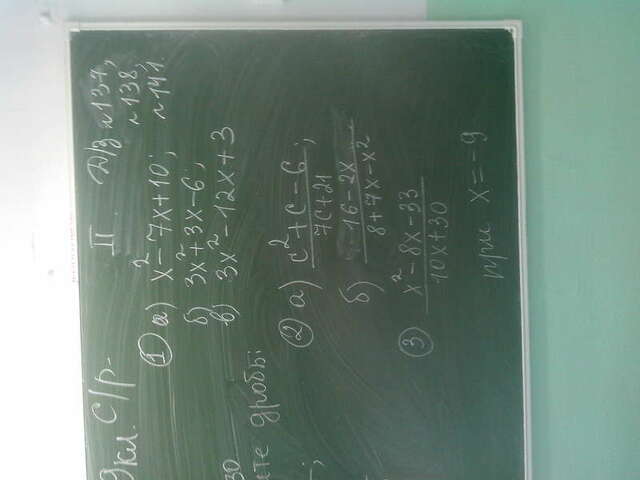 9кл. С/р-
II Д/з №137,
№138,
№141.
① а) x² - 7x + 10;
б) 3x² + 3x - 6;
в) 3x² - 12x + 3
30
ите дроби:
② а) c² + c - 6 / 7c + 21;
б) 16 - 2x / 8 + 7x - x²
③ x² - 8x - 33 / 10x + 30
при x = -9